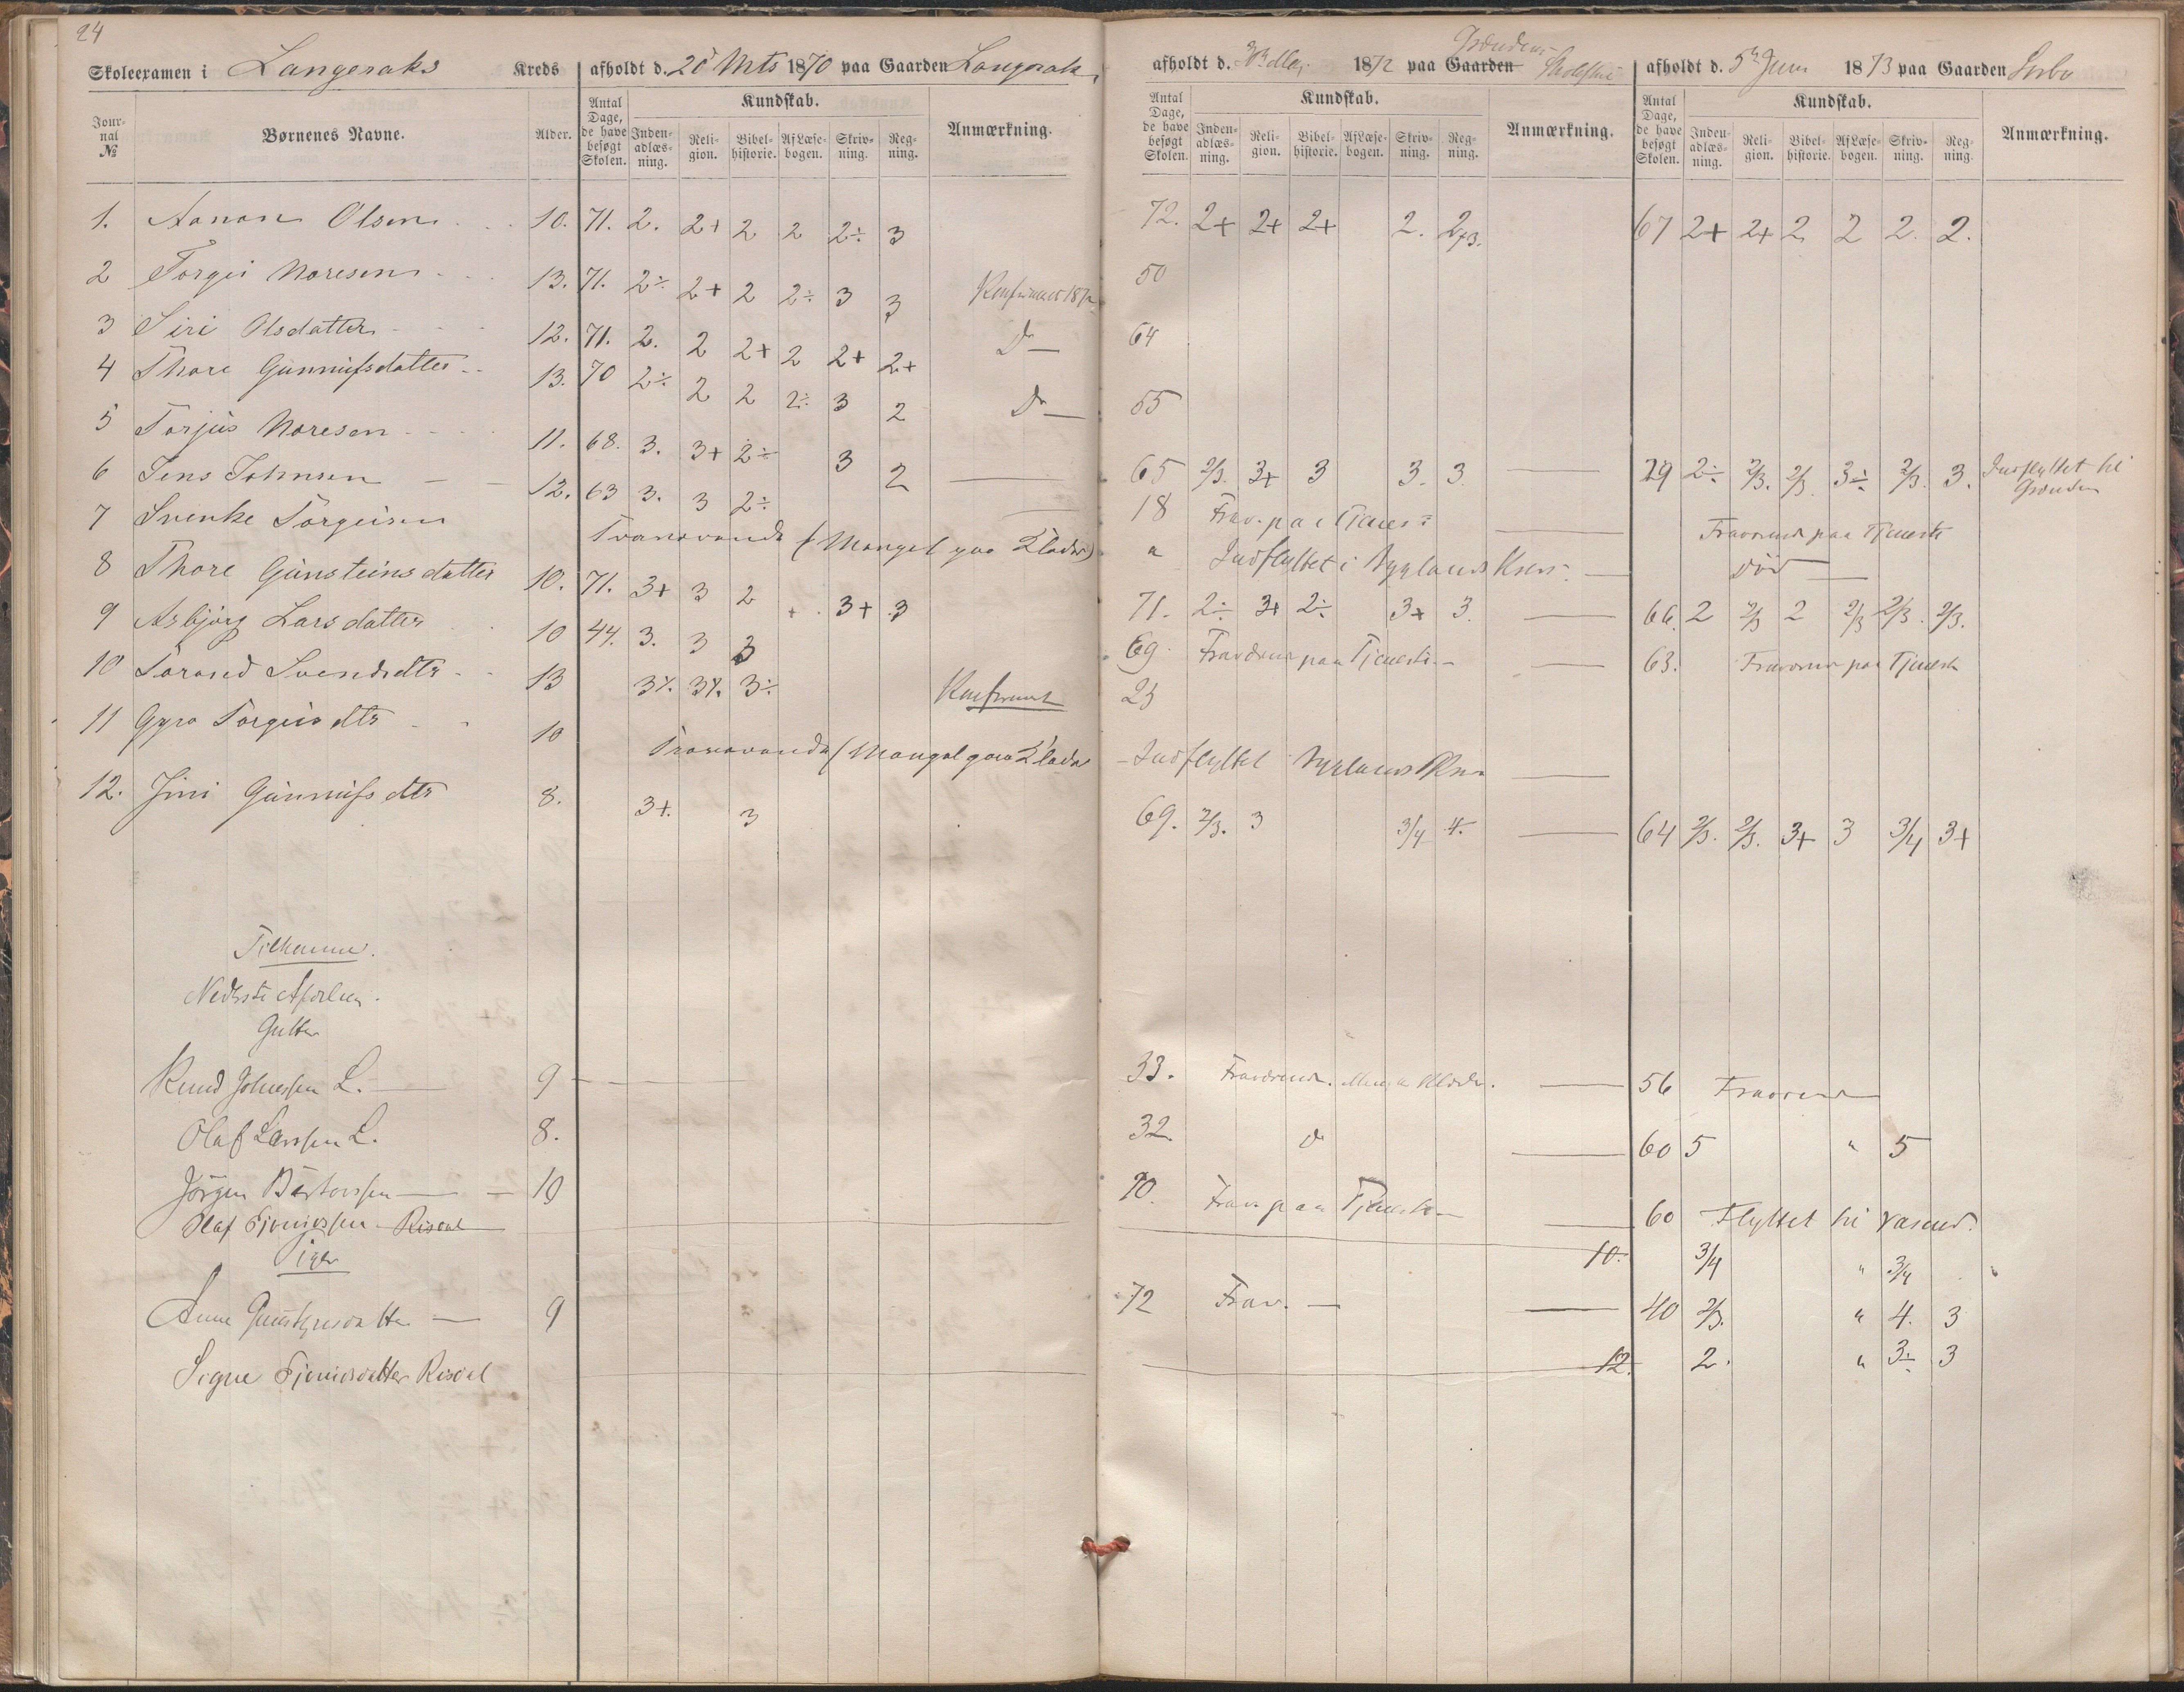 24
Skoleexamen i Langeraks Kreds afholdt d. 20 Mts 1870 paa Gaarden Langerak
Jour-nal № Børnenes Navne. Alder. Antal Dage, de have besøgt Skolen. Kundskab. Inden-adlæs-ning. Reli-gion. Bibel-historie. Af Læse-bogen. Skriv-ning. Reg-ning. Anmærkning.
1. Aanon Olsen 10. 71. 2. 2+ 2 2 2÷ 3
2 Torgei Noresen 13. 71. 2÷ 2+ 2 2÷ 3 3
3 Siri Olsdatter 12. 71. 2. 2 2+ 2 2+ 2+ D
4 Thore Gunnufsdatter 13. 70 2÷ 2 2 2÷ 3 2 D
5 Torjus Noresen 11. 68. 3. 3+ 2÷ 3 2
6 Jens Johnsen 12. 63 3. 3 2÷
7 Svenke Torgeisen
8 Thore Gunsteinsdatter 10. 71. 3+ 3 2 3+ 3
9 Asbjørg Larsdatter 10 44. 3. 3 3
10 Torand Svendsdtr 13 3÷ 3÷ 3÷ Konfirmert
11 Gyro Torgeisdtr 10
12. Gunnufsdtr 8. 3+. 3
Tilkomne.
Nederste Afdeling.
Gutter
Knud Johnsen L. 9
Olaf Larssen L. 8.
Jörgen 10
Olaf Risdal
Piger
Anne 9
Signe Risdal
afholdt d. 3die Maj 1872 paa Gaarden
Antal Dage, de have besøgt Skolen. Kundskab. Inden-adlæs-ning. Reli-gion. Bibel-historie. Af Læse-bogen. Skriv-ning. Reg-ning. Anmærkning.
72. 2+ 2+ 2+ 2. 2/3.
50
64
55
65 2/3. 3+ 3 3. 3.
18 Frav. paa Tjeneste
" Indflyttet i Kreds.
71. 2÷ 3+ 2÷ 3+ 3.
69. Fraværende paa Tjeneste
23
Indflyttet
69. 2/3. 3 3/4 4.
33. Fraværende. Klæder.
32. d
70. Frav. paa Tjeneste
10.
72 Frav.
12.
afholdt d. 5te Juni 1873 paa Gaarden
Antal Dage, de have besøgt Skolen. Kundskab. Inden-adlæs-ning. Reli-gion. Bibel-historie. Af Læse-bogen. Skriv-ning. Reg-ning. Anmærkning.
67 2+ 2+ 2 2 2. 2.
29 2÷ 2/3. 2/3. 3÷ 2/3. 3. Indflyttet til
Fraværende paa Tjeneste
død
66. 2 2/3 2 2/3 2/3. 2/3.
63. Fraværende paa Tjeneste
64 2/3. 2/3. 3+ 3 3/4 3+
56 Fraværende
60 5 " 5
60 Flyttet til
3/4 " 3/4
40 2/3. " 4. 3
2. " 3÷ 3